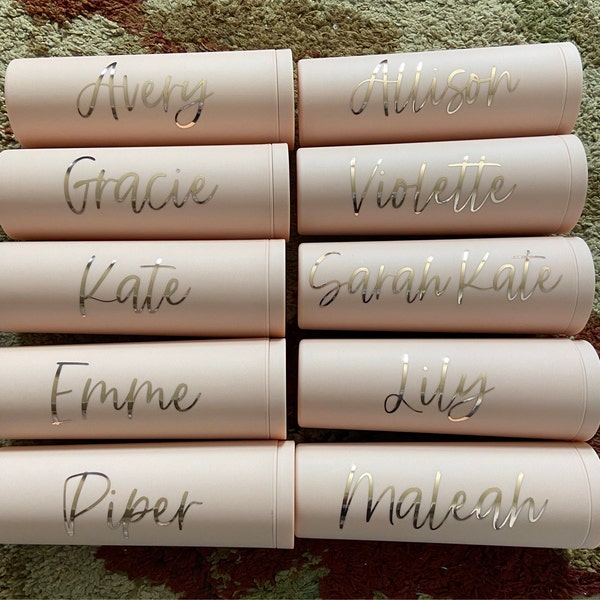 Avery
Allison
Gracie
Violette
Kate
Sarah Kate
Emme
Lily
Piper
Maleah